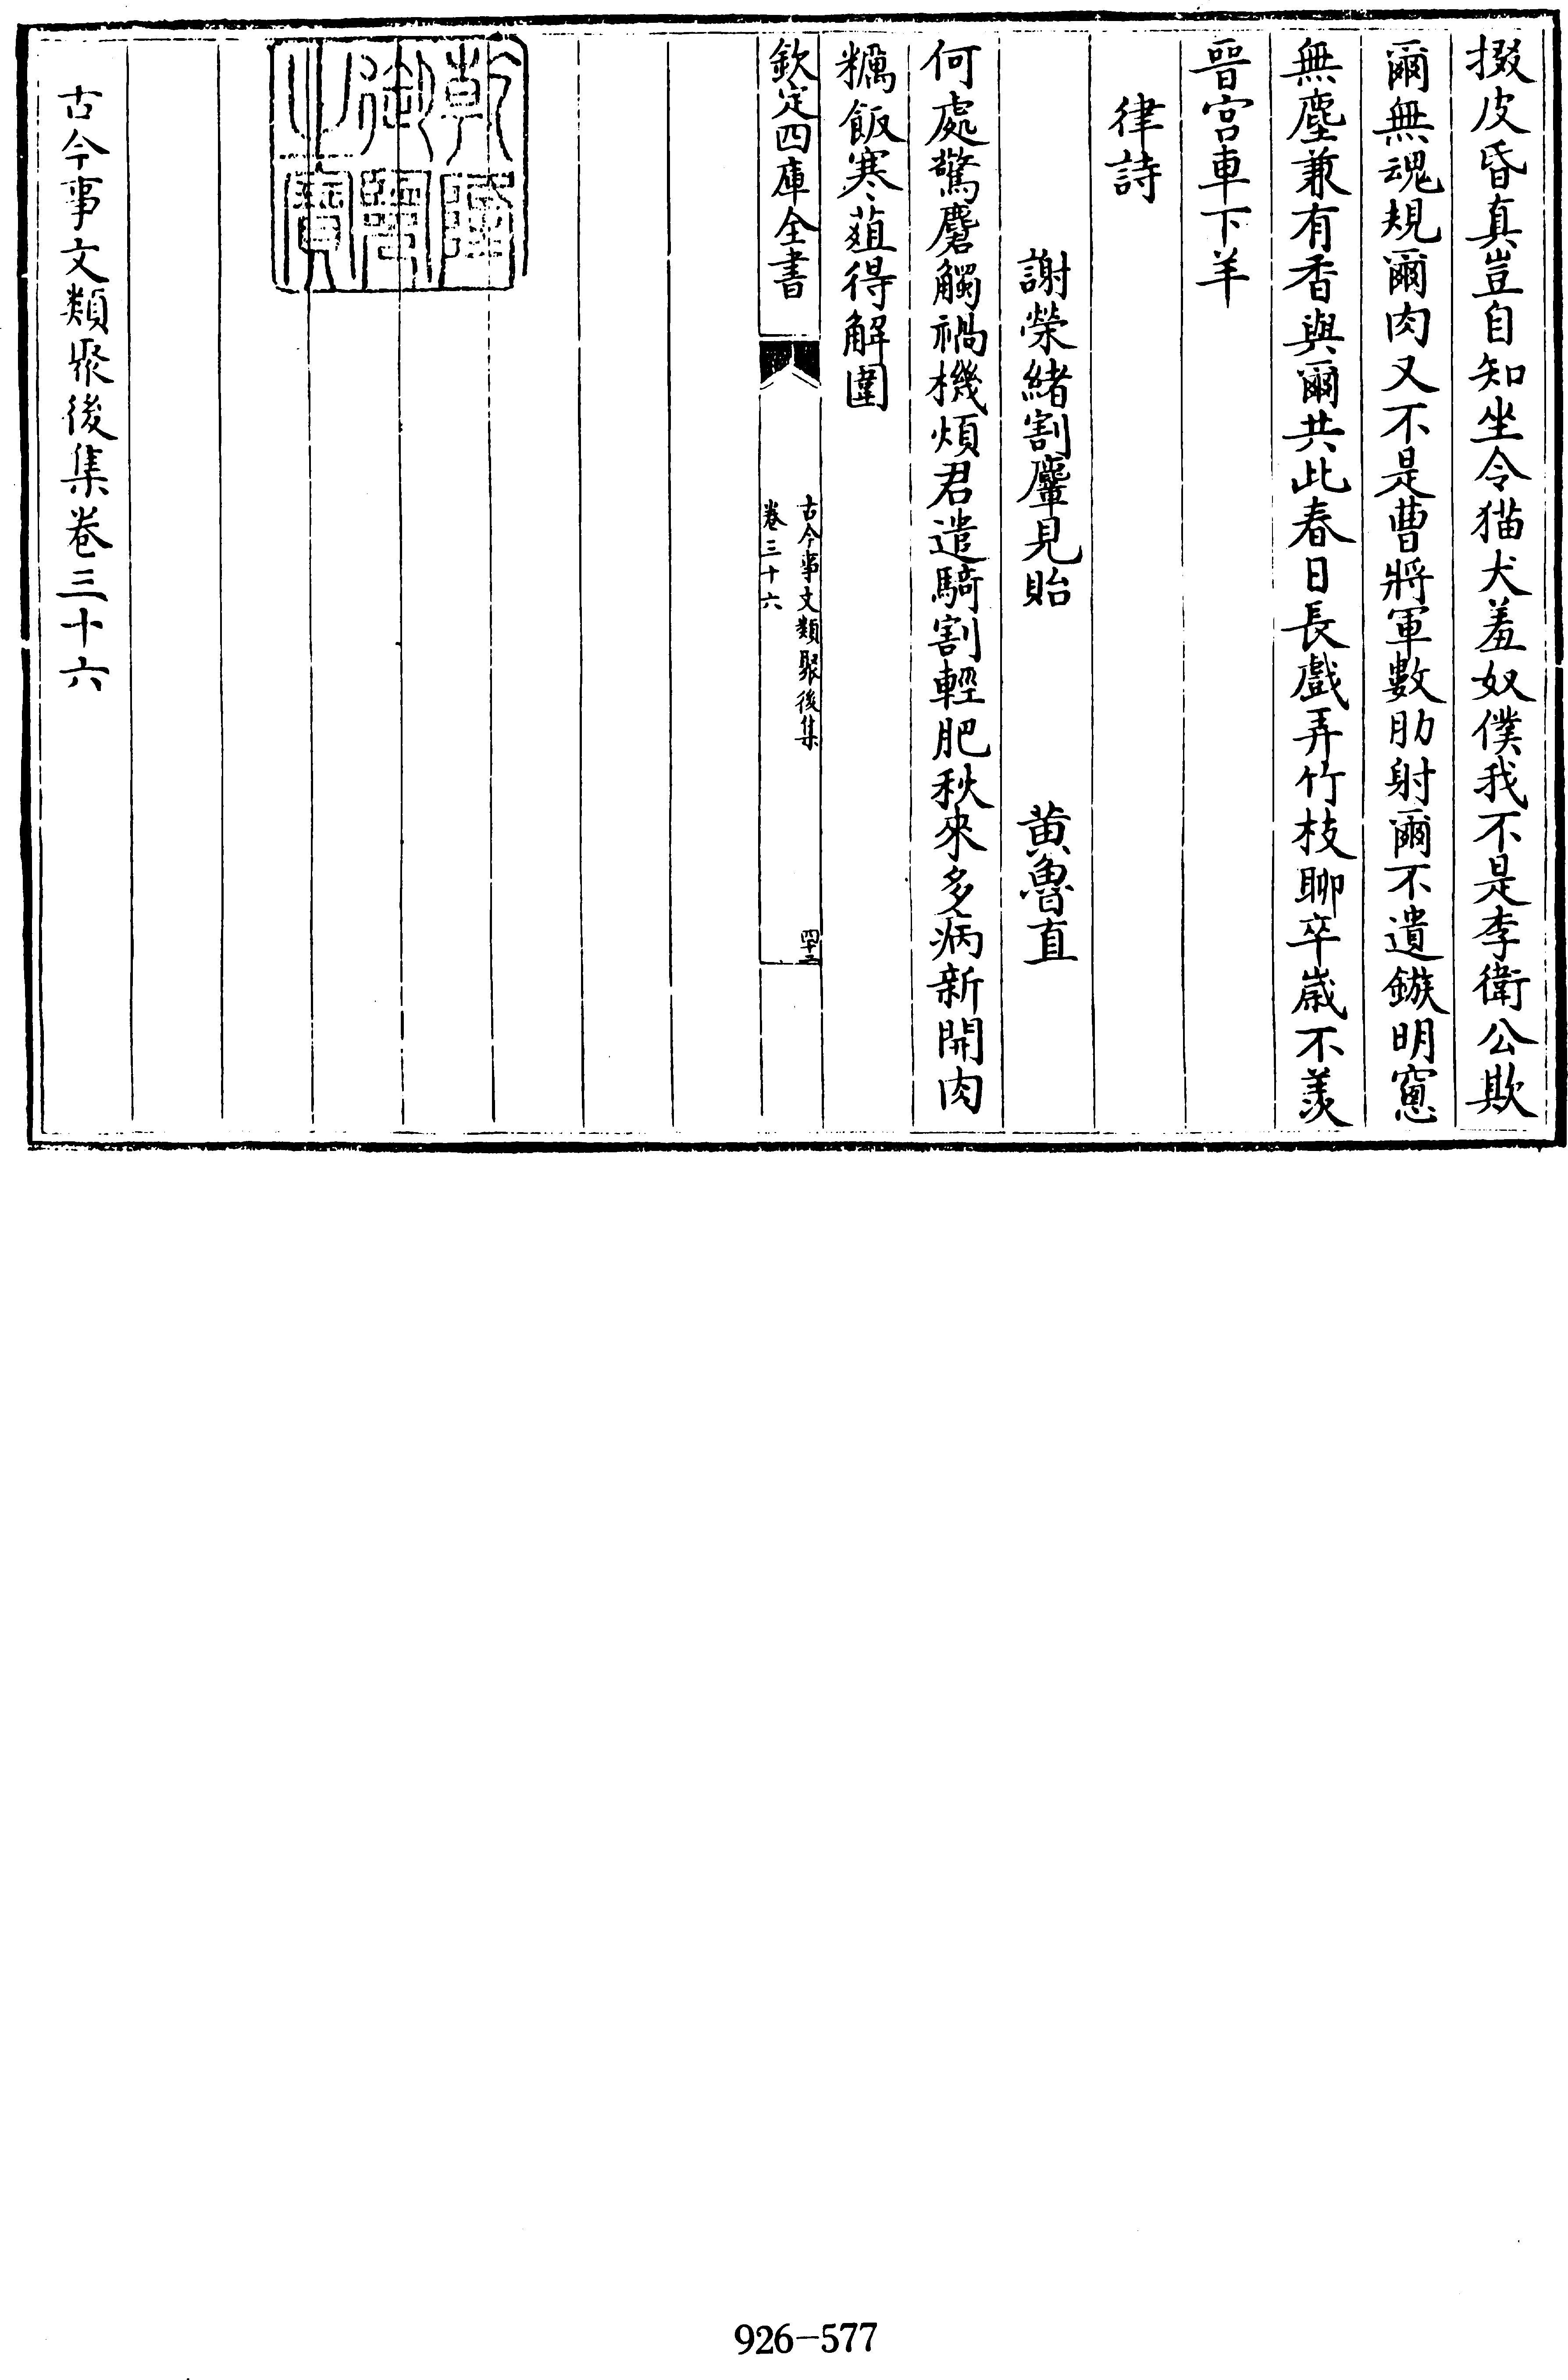 掇皮昏真豈自知坐令猫犬羞奴僕我不是李衛公欺
爾無魂規爾肉又不是曹將軍數肋射爾不遺鏃明窻
無塵兼有香與爾共此春日長戲弄竹枝聊卒嵗不羨
晉宫車下羊
律詩
謝榮緒割麞見貽 黄魯直
何處驚麏觸禍機煩君遣騎割輕肥秋來多病新開肉
糲飯寒葅得解圍
欽定四庫全書
古今事文類聚後集
卷三十六
四十三
乾隆
御覽
之寶
古今事文類聚後集卷三十六
926-577